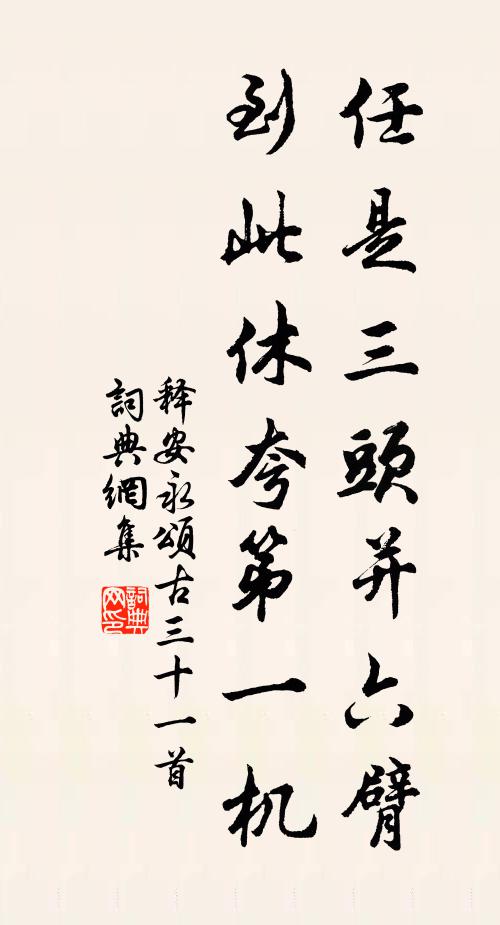 任是三頭并六臂
到此休夸第一机
释安永頌古三十一首
詞典網集
詞典网印